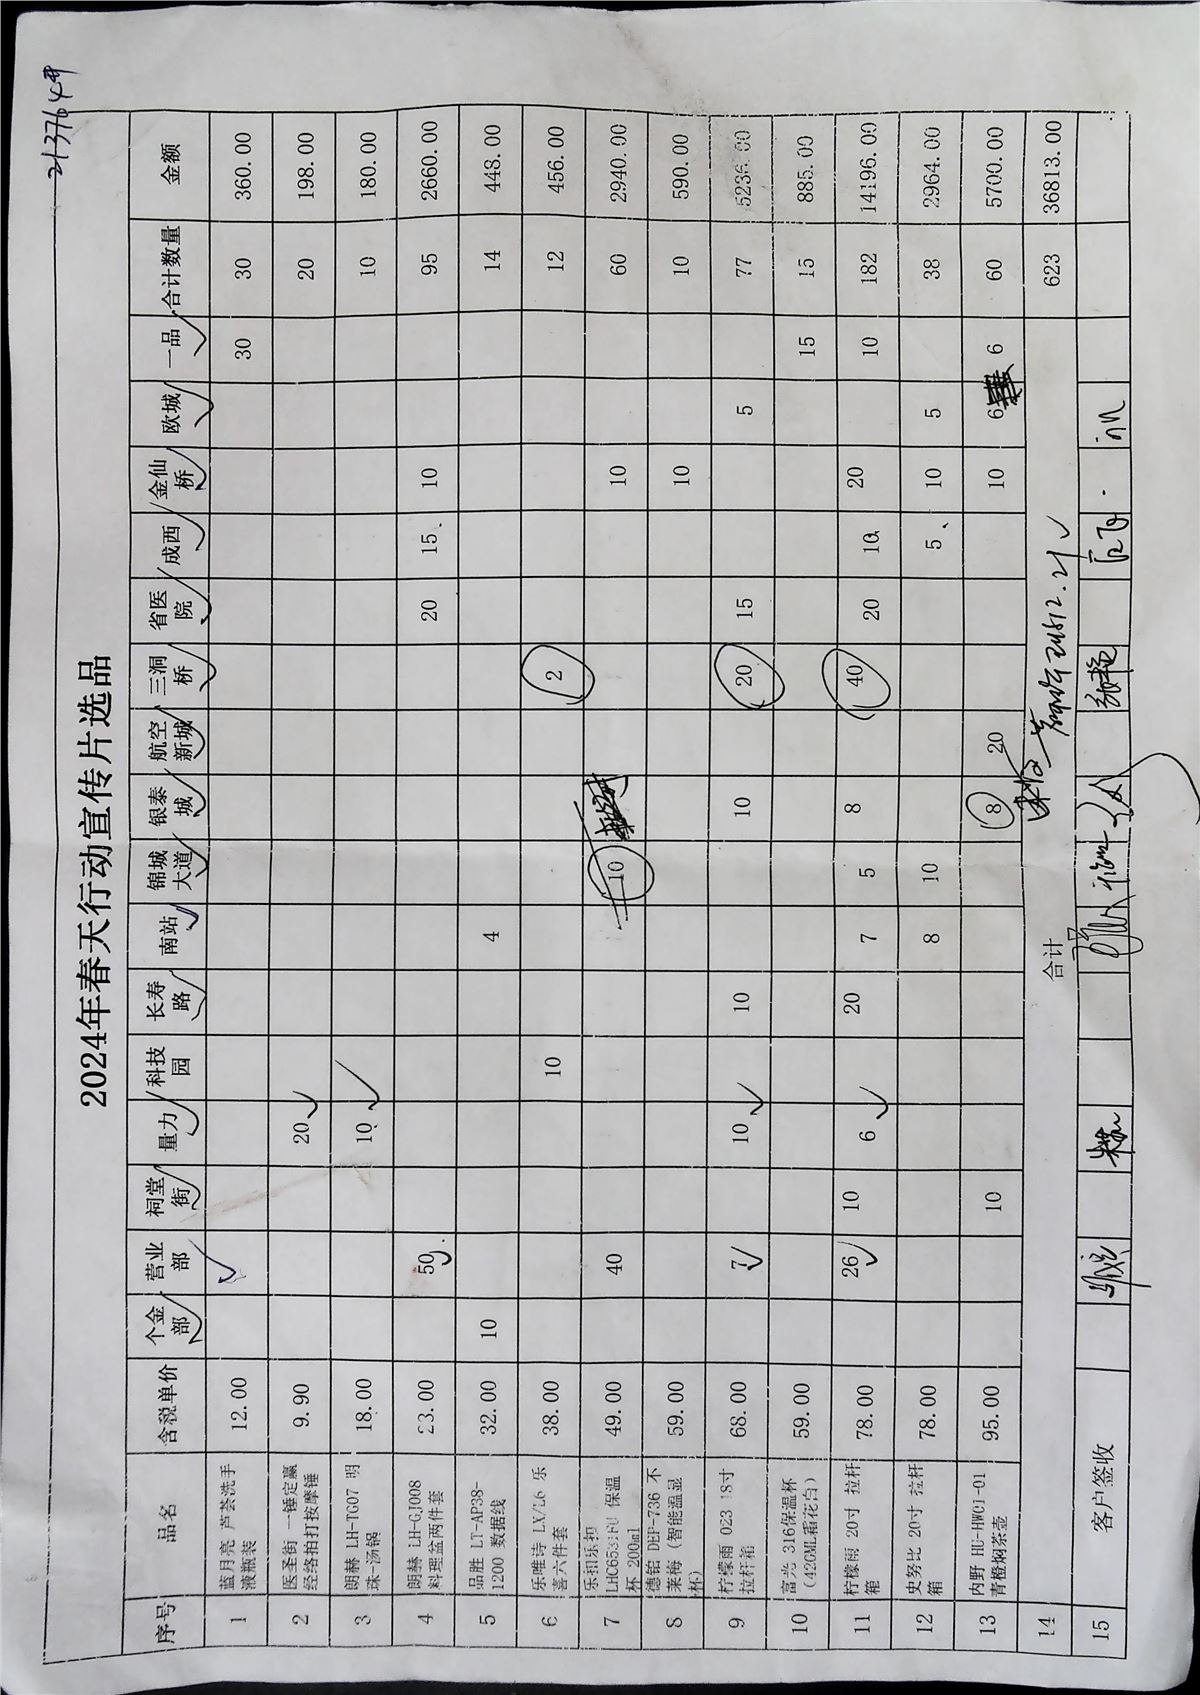 2137649
2024年春天行动宣传片选品
序号 品名 含税单价 个金部 营业部 祠堂街 量力 科技园 长寿路 南站 锦城大道 银泰城 航空新城 三洞桥 省医院 成西 金仙桥 欧城 一品 合计数量 金额
1 蓝月亮 芦荟洗手液瓶装 12.00 30 30 360.00
2 医圣街 一锤定赢 经络拍打按摩锤 9.90 20 20 198.00
3 朗赫 LH-TG07 明珠-汤锅 18.00 10 10 180.00
4 朗赫 LH-GJ008 料理盆两件套 23.00 50 20 15 10 95 2660.00
5 品胜 LT-AP38-1200 数据线 32.00 10 4 14 448.00
6 乐唯诗 乐喜六件套 38.00 10 2 12 456.00
7 乐扣乐扣 保温杯 200ml 49.00 40 10 10 60 2940.00
8 德铂 DEP-736 不莱梅（智能温显杯） 59.00 10 10 590.00
9 柠檬雨 023 18寸 拉杆箱 68.00 7 10 10 10 20 15 5 77 5236.00
10 富光 316保温杯（420ML霜花白） 59.00 15 15 885.00
11 柠檬雨 20寸 拉杆箱 78.00 26 10 6 20 7 5 8 40 20 10 20 10 182 14196.00
12 史努比 20寸 拉杆箱 78.00 8 10 5 10 5 38 2964.00
13 内野 HU-HW01-01 青橙焖茶壶 95.00 10 8 20 10 6 6 60 5700.00
14 合计 623 36813.00
15 客户签收